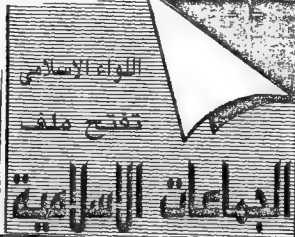 اللواء الاسلامى
تفتح ملف
الجماعات الإسلامية